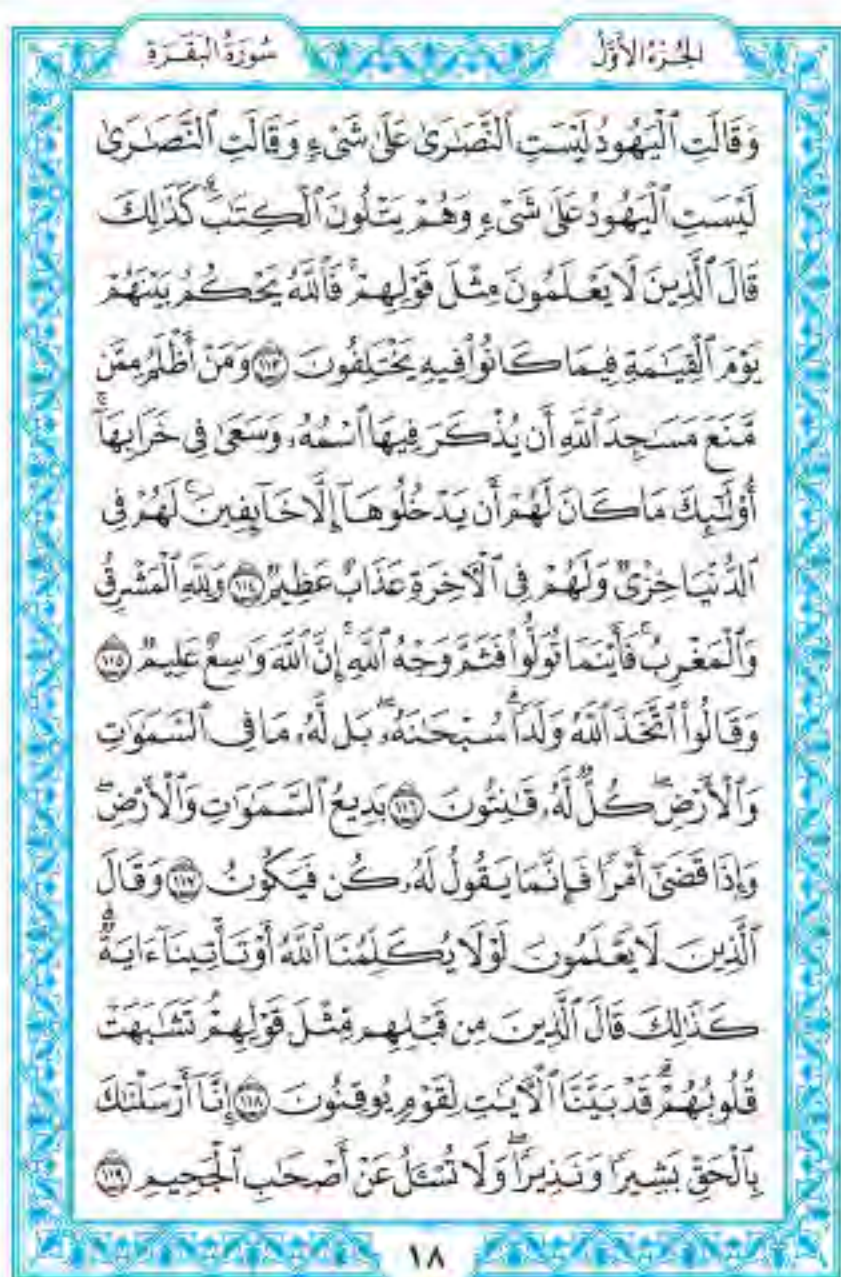 الجُزْءُ الأَوَّلُ سُورَةُ البَقَرَةِ
وَقَالَتِ ٱلۡيَهُودُ لَيۡسَتِ ٱلنَّصَٰرَىٰ عَلَىٰ شَىۡءٖ وَقَالَتِ ٱلنَّصَٰرَىٰ
لَيۡسَتِ ٱلۡيَهُودُ عَلَىٰ شَىۡءٖ وَهُمۡ يَتۡلُونَ ٱلۡكِتَٰبَۗ كَذَٰلِكَ
قَالَ ٱلَّذِينَ لَا يَعۡلَمُونَ مِثۡلَ قَوۡلِهِمۡۚ فَٱللَّهُ يَحۡكُمُ بَيۡنَهُمۡ
يَوۡمَ ٱلۡقِيَٰمَةِ فِيمَا كَانُواْ فِيهِ يَخۡتَلِفُونَ ١١٣ وَمَنۡ أَظۡلَمُ مِمَّن
مَّنَعَ مَسَٰجِدَ ٱللَّهِ أَن يُذۡكَرَ فِيهَا ٱسۡمُهُۥ وَسَعَىٰ فِى خَرَابِهَآۚ
أُوْلَٰٓئِكَ مَا كَانَ لَهُمۡ أَن يَدۡخُلُوهَآ إِلَّا خَآئِفِينَۚ لَهُمۡ فِى
ٱلدُّنۡيَا خِزۡىٞ وَلَهُمۡ فِى ٱلۡأٓخِرَةِ عَذَابٌ عَظِيمٞ ١١٤ وَلِلَّهِ ٱلۡمَشۡرِقُ
وَٱلۡمَغۡرِبُۚ فَأَيۡنَمَا تُوَلُّواْ فَثَمَّ وَجۡهُ ٱللَّهِۚ إِنَّ ٱللَّهَ وَٰسِعٌ عَلِيمٞ ١١٥
وَقَالُواْ ٱتَّخَذَ ٱللَّهُ وَلَدٗاۗ سُبۡحَٰنَهُۥۖ بَل لَّهُۥ مَا فِى ٱلسَّمَٰوَٰتِ
وَٱلۡأَرۡضِۖ كُلّٞ لَّهُۥ قَٰنِتُونَ ١١٦ بَدِيعُ ٱلسَّمَٰوَٰتِ وَٱلۡأَرۡضِۖ
وَإِذَا قَضَىٰٓ أَمۡرٗا فَإِنَّمَا يَقُولُ لَهُۥ كُن فَيَكُونُ ١١٧ وَقَالَ
ٱلَّذِينَ لَا يَعۡلَمُونَ لَوۡلَا يُكَلِّمُنَا ٱللَّهُ أَوۡ تَأۡتِينَآ ءَايَةٞۗ
كَذَٰلِكَ قَالَ ٱلَّذِينَ مِن قَبۡلِهِم مِّثۡلَ قَوۡلِهِمۡۘ تَشَٰبَهَتۡ
قُلُوبُهُمۡۗ قَدۡ بَيَّنَّا ٱلۡأٓيَٰتِ لِقَوۡمٖ يُوقِنُونَ ١١٨ إِنَّآ أَرۡسَلۡنَٰكَ
بِٱلۡحَقِّ بَشِيرٗا وَنَذِيرٗاۖ وَلَا تُسۡـَٔلُ عَنۡ أَصۡحَٰبِ ٱلۡجَحِيمِ ١١٩
١٨